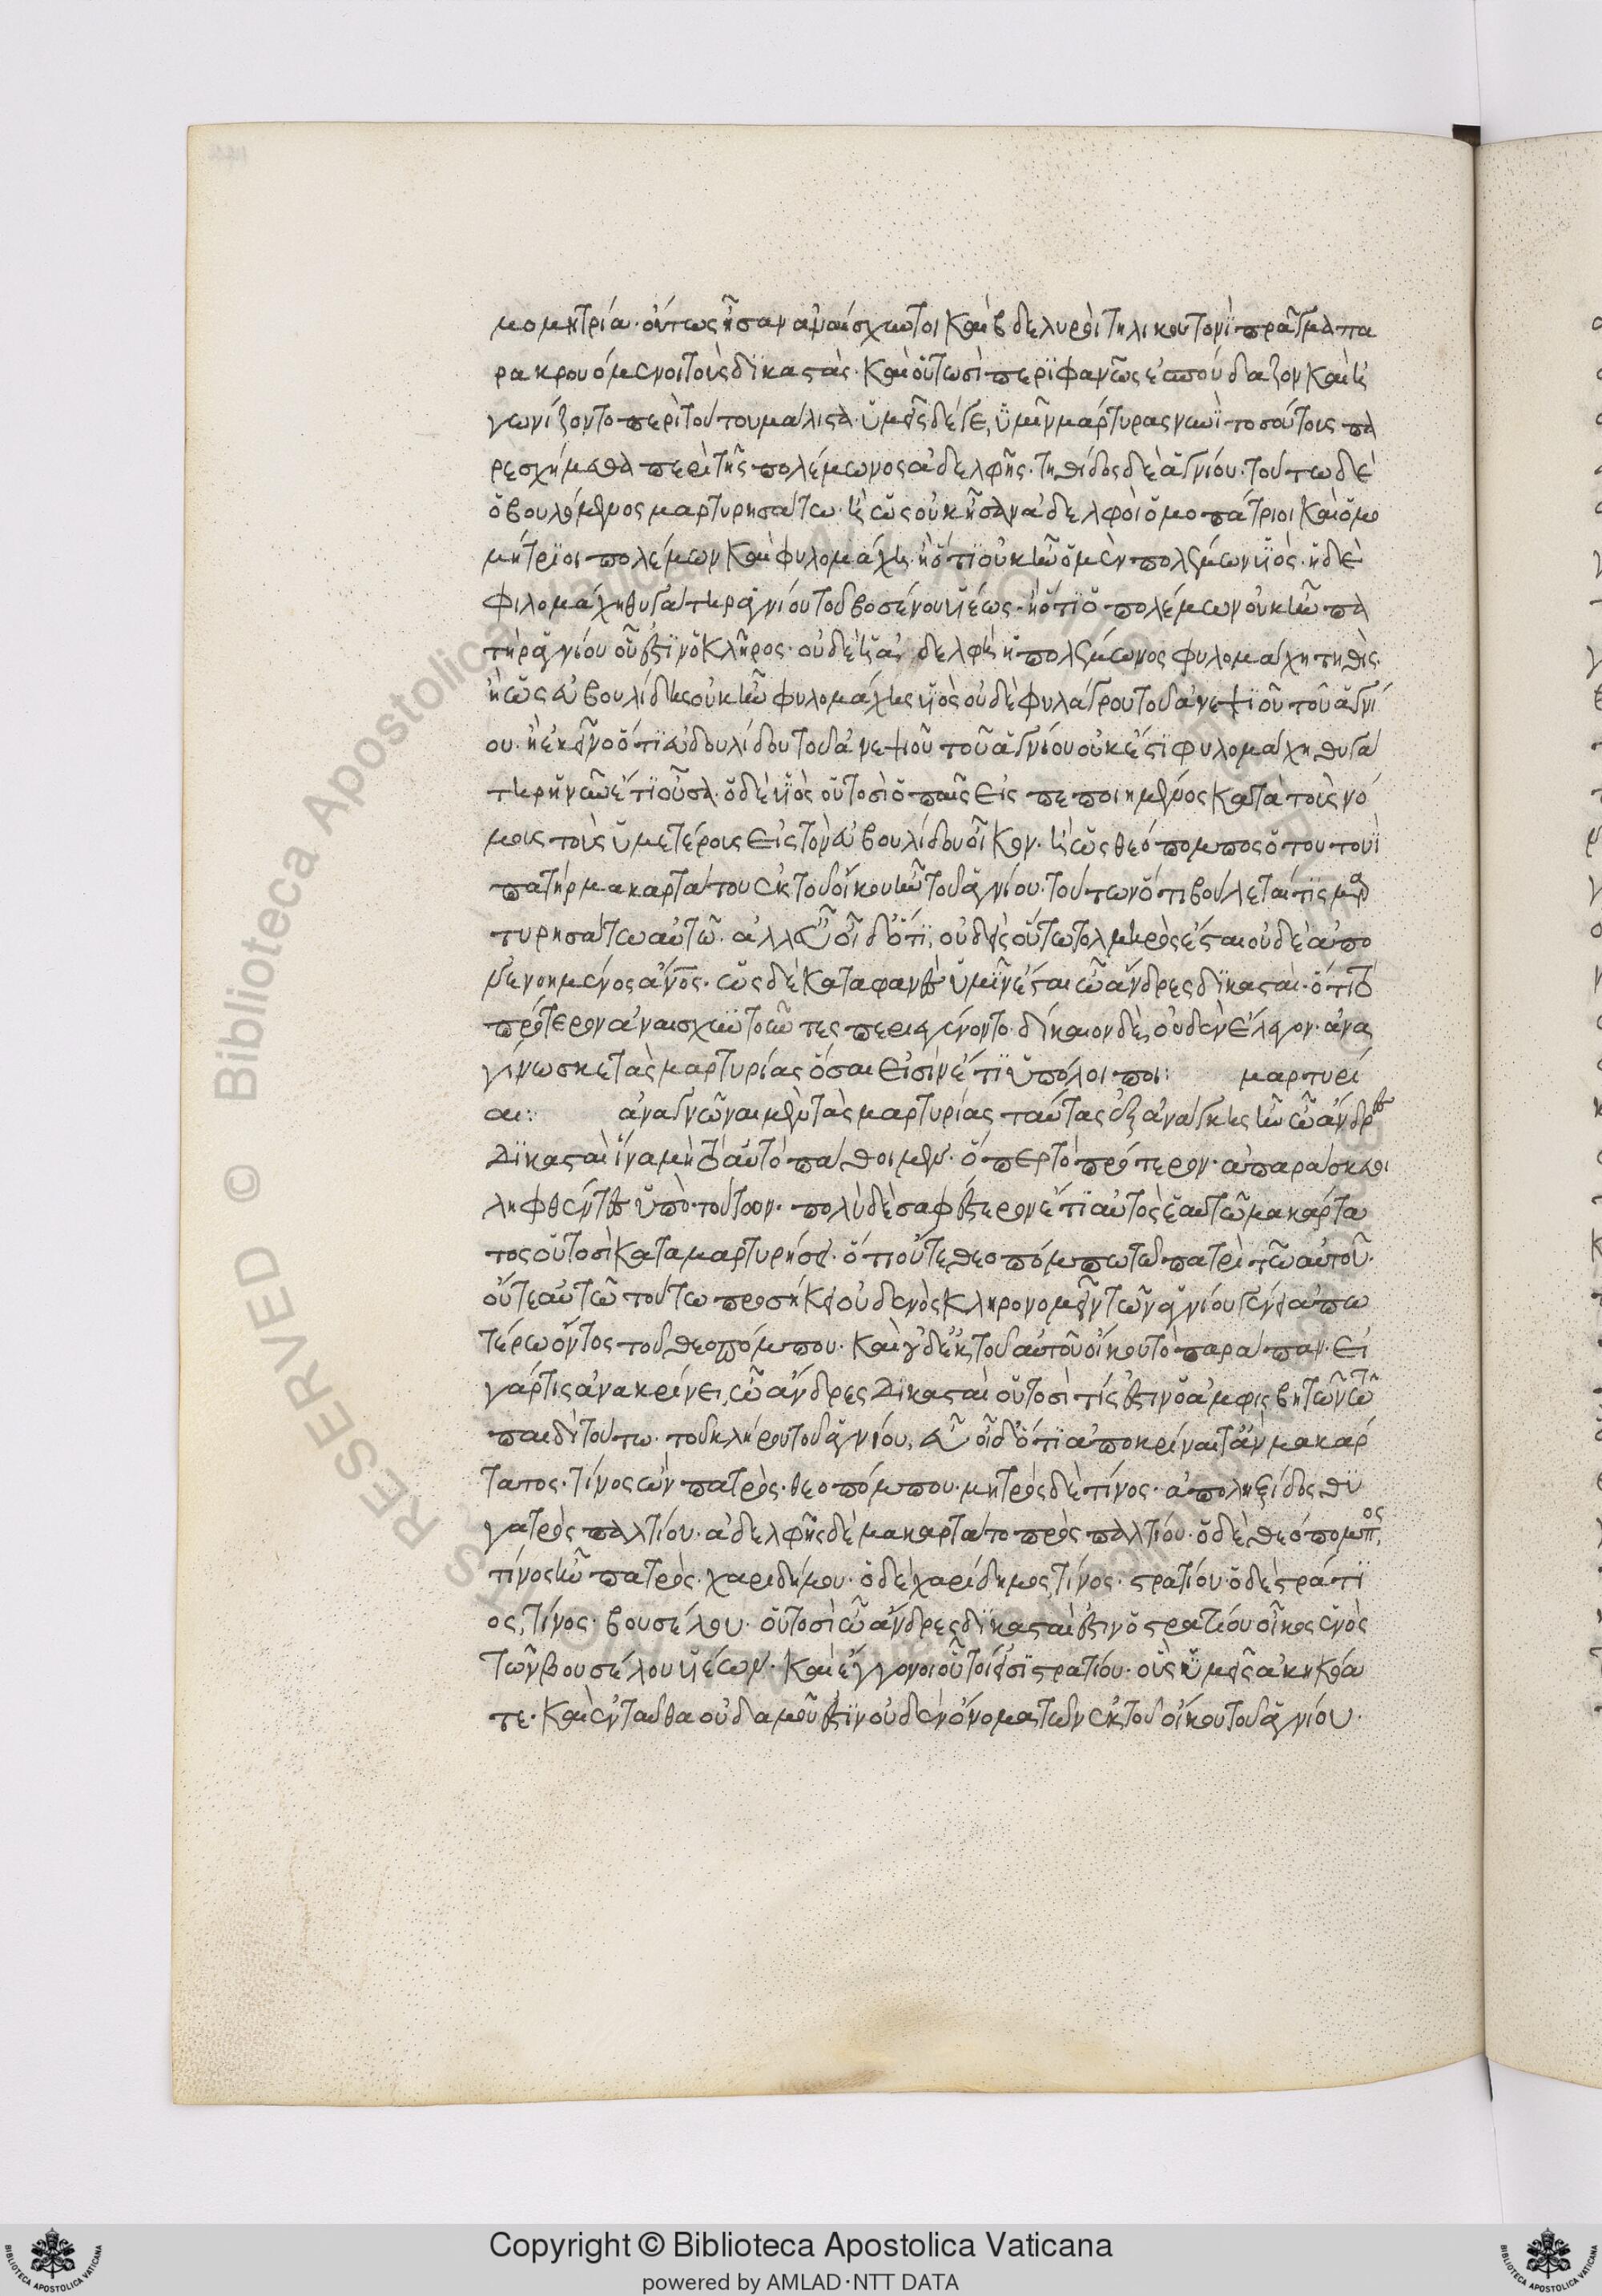 μομητρία· οὕτως ἦσαν ἀναίσχυντοι καὶ βδελυροὶ τηλικουτονὶ πρᾶγμα πα
ρακρουόμενοι τοὺς δικαστάς· καὶ οὑτωσὶ περιφανῶς ἐσπούδαζον καὶ ἠ
γωνίζοντο περὶ τούτου μάλιστα· ὑμεῖς δέ γε, ὑμῖν μάρτυρας νυνὶ τοσούτους πα
ρεσχήμεθα περὶ τῆς πολέμωνος ἀδελφῆς· τηθίδος δὲ ἁγνίου· τούτω δὲ
ὁ βουλόμενος μαρτυρησάτω· ἢ ὡς οὐκ ἦσαν ἀδελφοὶ ὁμοπάτριοι καὶ ὁμο
μήτριοι πολέμων καὶ φυλομάχη· ἢ ὅτι οὐκ ἦν ὁ μὲν πολέμων υἱὸς· ἡ δὲ
φιλομάχη θυγάτηρ ἁγνίου τοῦ βοσένου υἱέως· ἢ ὅτι ὁ πολέμων οὐκ ἦν πα
τὴρ ἁγνίου οὗ ἐστιν ὁ κλῆρος· οὐδὲ ἡ ἀδελφὴ ἡ πολέμωνος φυλομάχη τηθὶς·
ἢ ὡς εὐβουλίδης οὐκ ἦν φυλομάχης υἱὸς οὐδὲ φυλάγρου τοῦ ἀνεψιοῦ τοῦ ἁγνί
ου· ἢ ἐκεῖνο ὅτι εὐβουλίδου τοῦ ἀνεψιοῦ τοῦ ἁγνίου οὐκ ἔστι φυλομάχη θυγά
τηρ ἡ νῦν ἔτι οὖσα· ὁ δὲ υἱὸς οὑτοσὶ ὁ παῖς εἰς πεποιημένος κατὰ τοὺς νό
μους τοὺς ὑμετέρους εἰς τὸν εὐβουλίδου οἶκον· ἢ ὡς θεόπομπος ὁ τουτουῒ
πατὴρ μακαρτάτου ἐκ τοῦ οἴκου ἦν τοῦ ἁγνίου· τούτων ὅτι βούλεταί τις μαρ
τυρησάτω αὐτῶ· ἀλλ' εὖ οἶδ' ὅτι, οὐδεὶς οὕτω τολμηρὸς ἔσται οὐδὲ ἀπο
νενοημένος ἄνος· ὡς δὲ καταφανὲς ὑμῖν ἔσται ὦ ἄνδρες δικασταὶ· ὅτι τὸ
πρότερον ἀναισχυντοῦντες περιεγένοντο· δίκαιον δὲ, οὐδὲν ἔλεγον· ἀνα
γίνωσκε τὰς μαρτυρίας ὅσαι εἰσὶν ἔτι ὑπόλοιποι: μαρτυρί
αι: ἀναγνῶναι μὲν τὰς μαρτυρίας ταύτας ἐξ ἀνάγκης ἦν ὦ ἄνδρες
δικασταὶ ἵνα μὴ τὸ αὐτὸ πάθοιμεν· ὅπερ τὸ πρότερον· ἀπαράσκευοι
ληφθέντες ὑπὸ τούτοον· πολὺ δὲ σαφέστερον ἔτι αὐτὸς ἑαυτῶ μακάρτα
τος οὑτοσὶ καταμαρτυρήσει· ὅτι οὔτε θεοπόμπω τῶ πατρὶ τῶ αὐτοῦ·
οὔτε αὐτῶ τούτω προσήκει οὐδενὸς κληρονομεῖν τῶν ἁγνίου γένει ἀπω
τέρω ὄντος τοῦ θεοπόμπου· καὶ οὐδὲ ἐκ τοῦ αὐτοῦ οἴκου τὸ παράπαν· εἰ
γάρ τις ἀνακρίνει, ὦ ἄνδρες δικασταὶ οὑτοσὶ τίς ἐστιν ὁ ἀμφισβητῶν τῶ
παιδὶ τούτω· τοῦ κλήρου τοῦ ἁγνίου, εὖ οἶδ' ὅτι ἀποκρίναιτ' ἂν μακάρ
τατος· τίνος ὢν πατρὸς· θεοπόμπου· μητρὸς δὲ τίνος· ἀποληξίδος θυ
γατρὸς παλτίου· ἀδελφῆς δὲ μακαρτάτο πρὸς παλτίου· ὁ δὲ θεόπομπος,
τίνος ἦν πατρὸς· χαριδήμου· ὁ δὲ χαρίδημος τίνος· στρατίου· ὁ δὲ στράτι
ος, τίνος· βουσέλου· οὑτοσὶ ὦ ἄνδρες δικασταὶ ἐστιν ὁ στρατίου οἶκος ἑνὸς
τῶν βουσέλου υἱέων· καὶ ἔγγονοι οὗτοί εἰσι στρατίου· οὓς ὑμεῖς ἀκηκόα
τε· καὶ ἐνταῦθα οὐδαμοῦ ἐστὶν οὐδὲν ὄνομα τῶν ἐκ τοῦ οἴκου τοῦ ἁγνίου·
RESERVED © Biblioteca Apostolica Vaticana
Copyright © Biblioteca Apostolica Vaticana
powered by AMLAD·NTT DATA